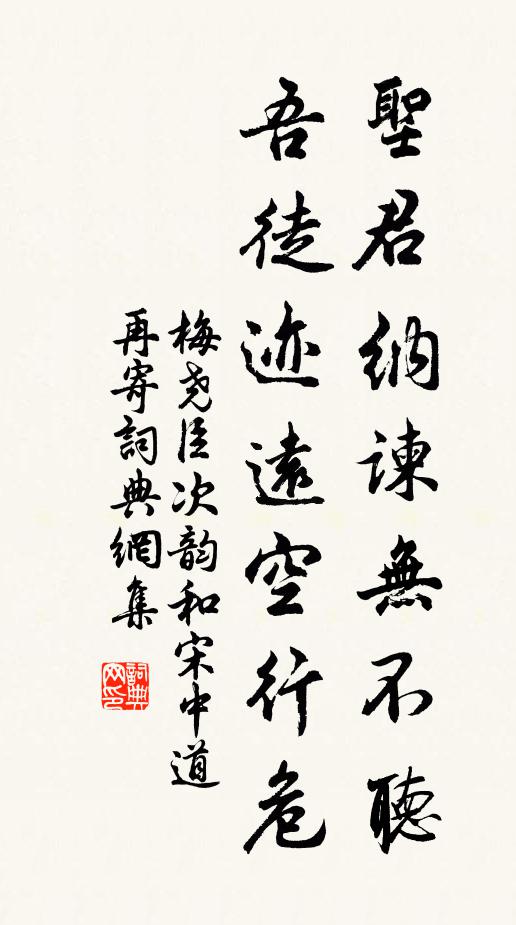 聖君納諫無不聽
吾徒迹遠空行危
梅尧臣次韵和宋中道
再寄詞典網集
詞典网印